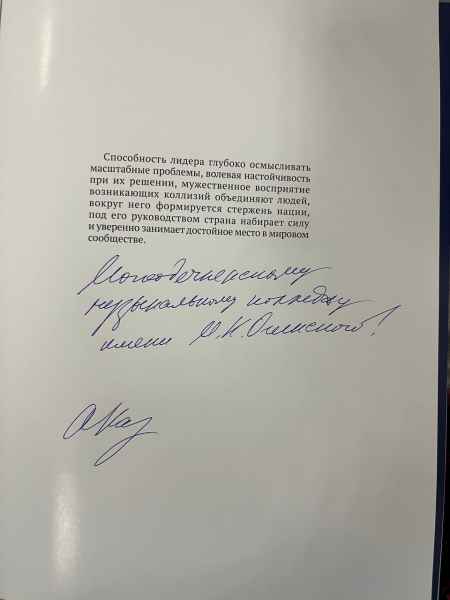 Способность лидера глубоко осмысливать
масштабные проблемы, волевая настойчивость
при их решении, мужественное восприятие
возникающих коллизий объединяют людей,
вокруг него формируется стержень нации,
под его руководством страна набирает силу
и уверенно занимает достойное место в мировом
сообществе.
Молодечненскому
музыкальному колледжу
имени М.К.Огинского!